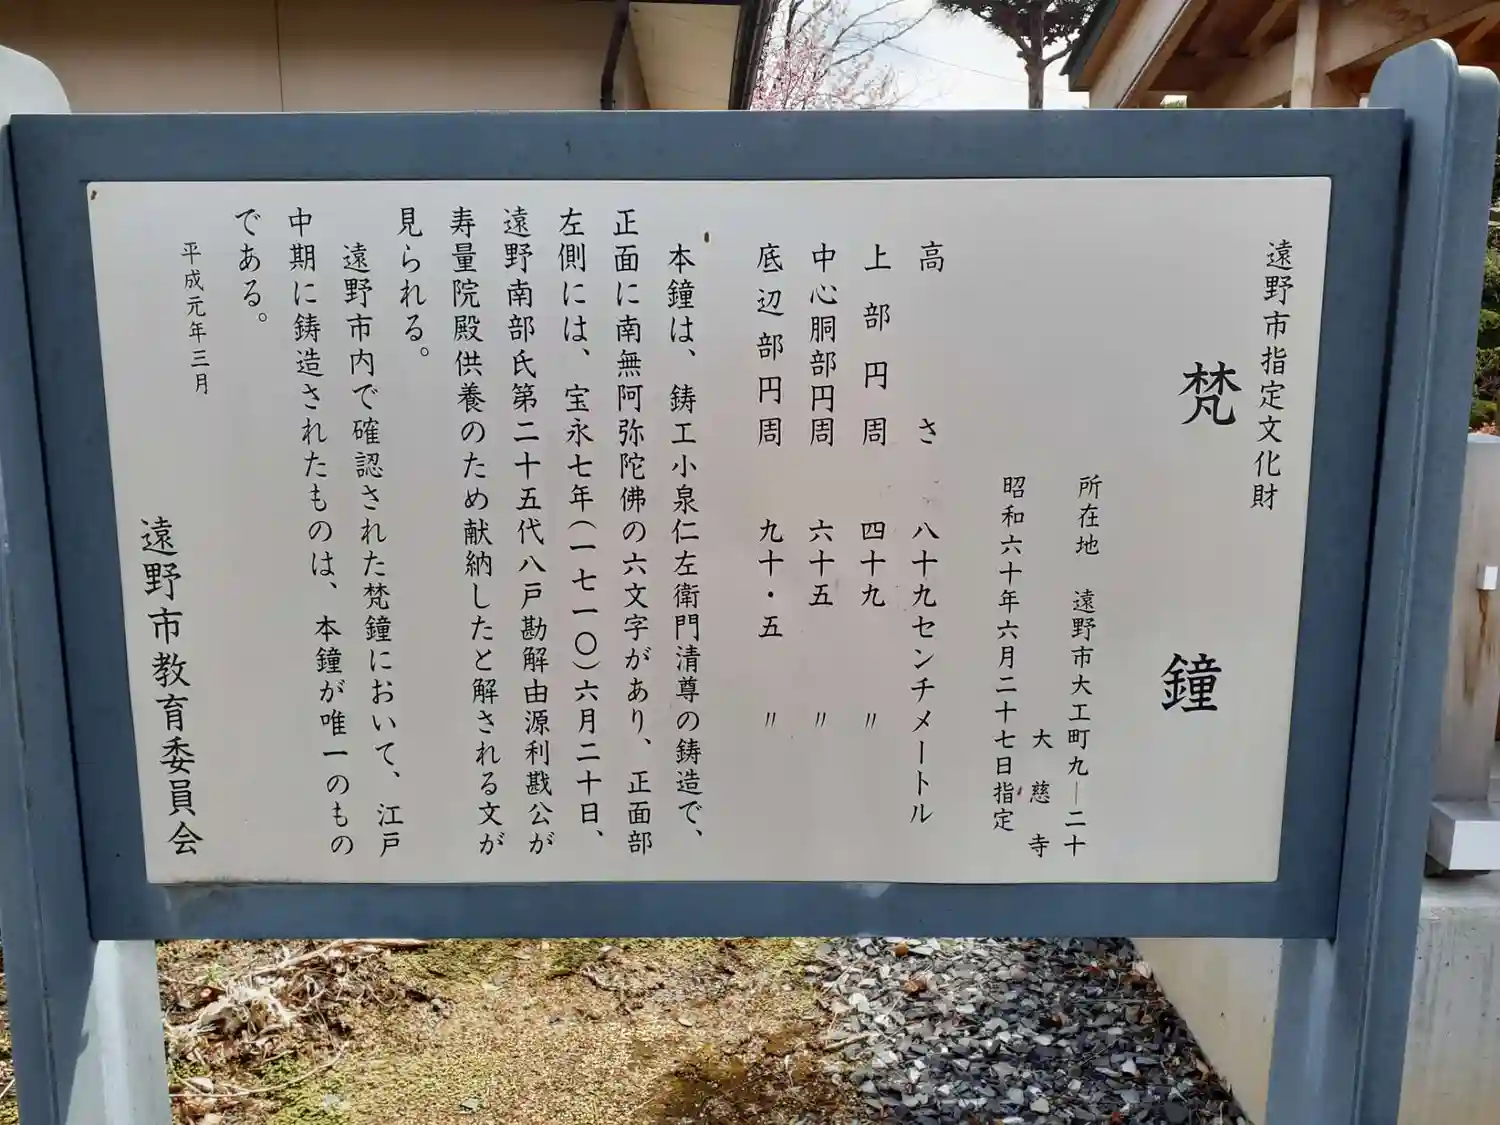 遠野市指定文化財
梵鐘
所在地　遠野市大工町九―二十
大慈寺
昭和六十年六月二十七日指定
高さ　八十九センチメートル
上部円周　四十九　〃
中心胴部円周　六十五　〃
底辺部円周　九十・五　〃
本鐘は、鋳工小泉仁左衛門清尊の鋳造で、
正面に南無阿弥陀佛の六文字があり、正面部
左側には、宝永七年(一七一〇)六月二十日、
遠野南部氏第二十五代八戸勘解由源利戡公が
寿量院殿供養のため献納したと解される文が
見られる。
遠野市内で確認された梵鐘において、江戸
中期に鋳造されたものは、本鐘が唯一のもの
である。
平成元年三月
遠野市教育委員会